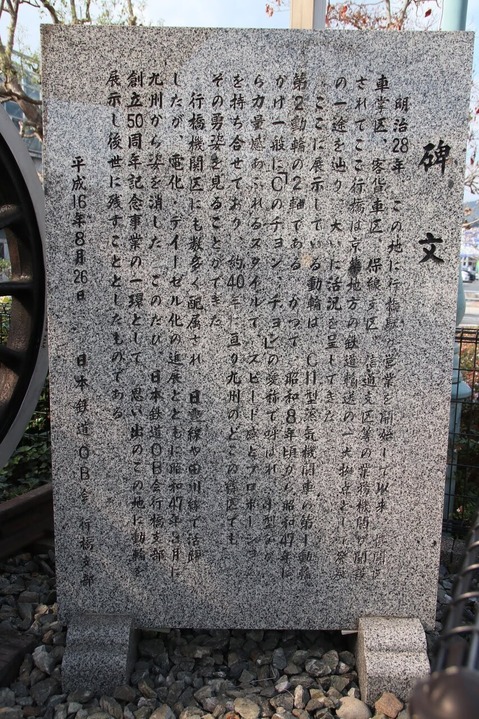 碑文
明治28年 この地に行橋駅が営業を開始して以来 機関区
車掌区、客貨車区、保線支区、信通支区等の業務機関が開設
されてここ行橋は京築地方の鉄道輸送の一大拠点として発展
の一途を辿り、大いに活況を呈してきた
ここに展示している動輪は、C11型蒸気機関車の第1動輪
第2動輪の2軸である かつて、昭和8年頃から昭和47年に
かけ一般に「Cのチョンチョン の愛称で呼ばれ 小型なが
ら力量感あふれるスタイルで、スピード感とプロポーション
を持ち合せており、約40年に亘り九州のどこの線区でも
その勇姿を見ることができた
行橋機関区にも数多く配属され 日豊線や田川線で活躍
したが、電化、ディーゼル化の進展とともに昭和47年3月に
九州から姿を消した このたび、日本鉄道OB会行橋支部
創立50周年記念事業の一環として、思い出のこの地に動輪を
展示し後世に残すこととしたものである
平成16年8月26日 日本鉄道OB会 行橋支部